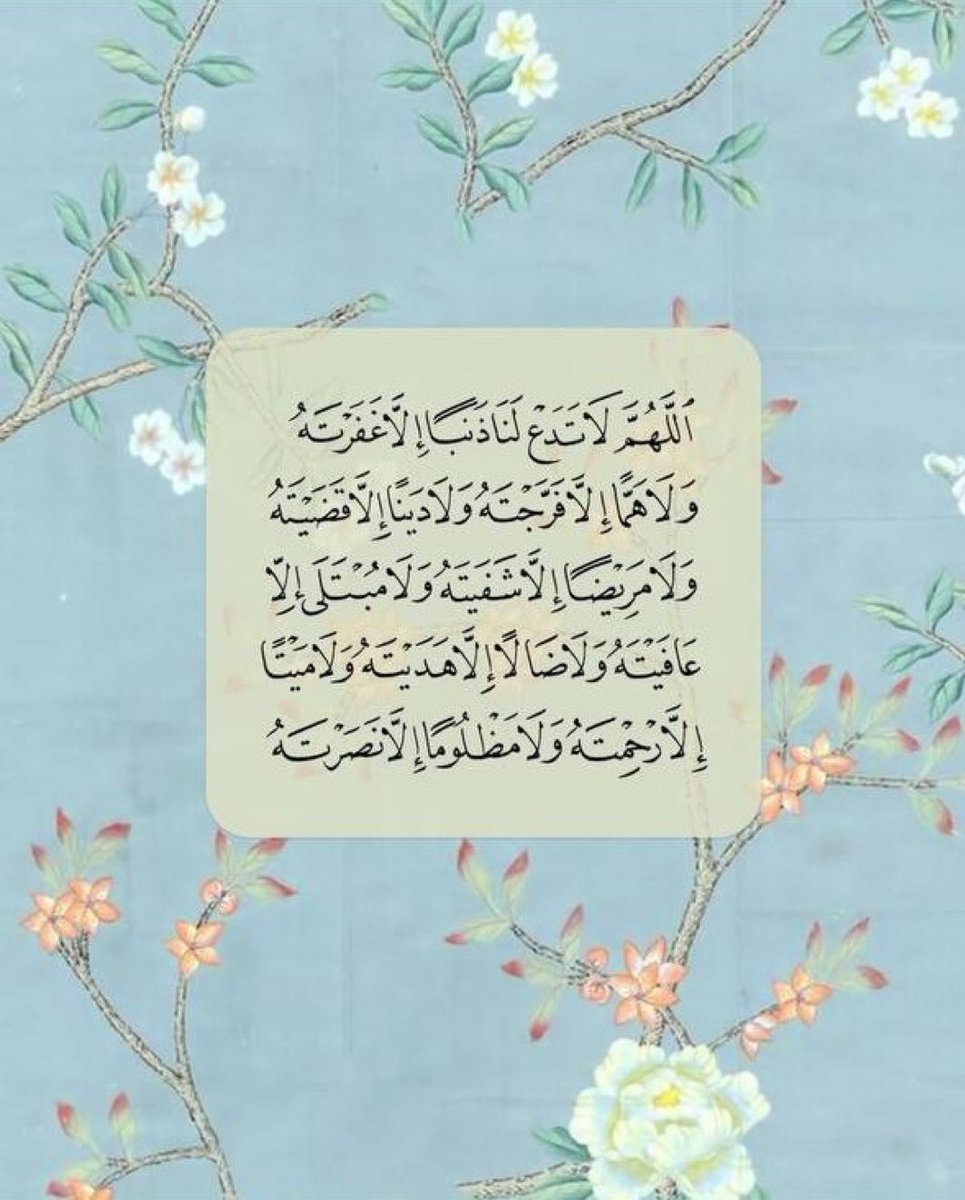 ٱللَّهُمَّ لَا تَدَعْ لَنَا ذَنبًا إِلَّا غَفَرْتَهُ
وَلَا هَمًّا إِلَّا فَرَّجْتَهُ وَلَا دَيْنًا إِلَّا قَضَيْتَهُ
وَلَا مَرِيْضًا إِلَّا شَفَيْتَهُ وَلَا مُبْتَلَى إِلَّا
عَافَيْتَهُ وَلَا ضَالًا إِلَّا هَدَيْتَهُ وَلَا مَيْتًا
إِلَّا رَحِمْتَهُ وَلَا مَظْلُومًا إِلَّا نَصَرْتَهُ